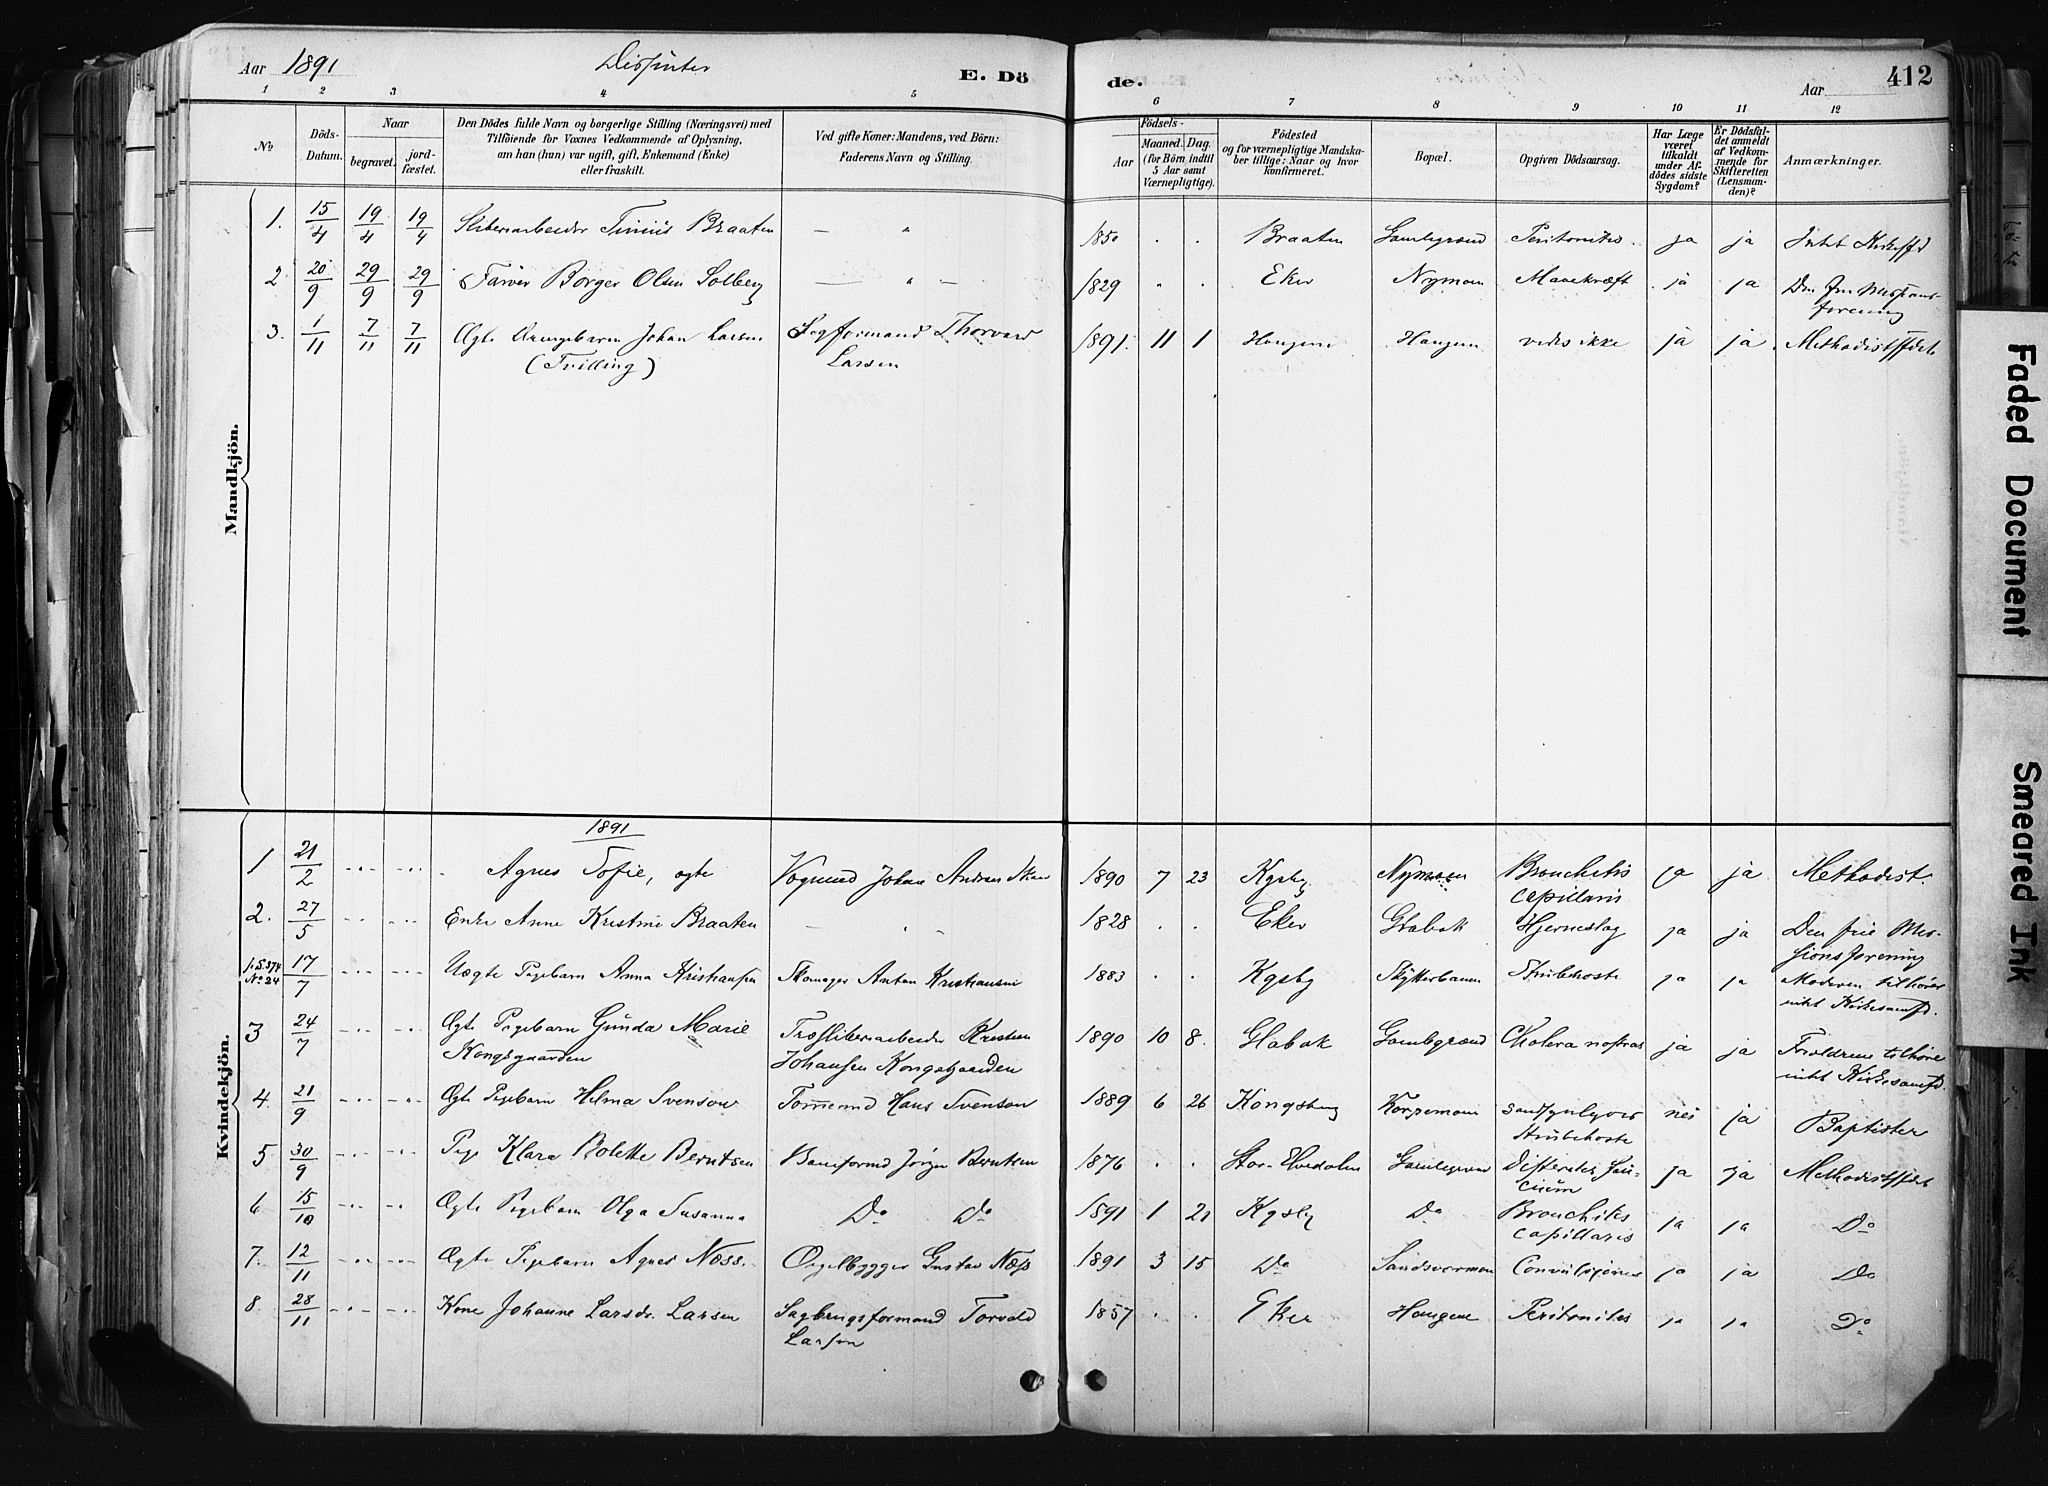 Aar 1891 Disjinter E. Dö de. Aar 412
1 2 3 4 5 6 7 8 9 10 11 12
No
Döds-Datum.
Naar
begravet.
jord-fæstet.
Den Dödes fulde Navn og borgerlige Stilling (Næringsvei) med
Tilföiende for Voxnes Vedkommende af Oplysning,
om han (hun) var ugift, gift, Enkemand (Enke)
eller fraskilt.
Ved gifte Koner: Mandens, ved Börn:
Faderens Navn og Stilling.
Födsels-
Aar
Maaned. Dag.
(for Börn indtil
5 Aar samt
Værnepligtige).
Födested
og for værnepligtige Mandska-
ber tillige: Naar og hvor
konfirmeret.
Bopæl.
Opgiven Dödsaarsag.
Har Læge
været
tilkaldt
under Af-
dödes sidste
Sygdom?
Er Dödsfal-
det anmeldt
af Vedkom-
mende for
Skifteretten
(Lensman-
den)?
Anmærkninger.
Mandkjön.
1. 15/4 19/4 19/4 Sliberiarbeider Tinius Braaten — " 1850 . . Braaten Gamlegrænd Peritonitis. ja ja Intet Kirkesfd
2 20/9 29/9 29/9 Farver Borger Olsen Solberg — " — " . 1829 Eker Nymoen Mavekræft ja ja Den frie Missions-
forening
3. 1/11 7/11 7/11 Ægte Drengebarn Johan Larsen Sagformand Thorvald 1891. 11 1 Haugene Haugen vides ikke ja ja Methodistsfdet
(Trilling) Larsen
Kvindekjön.
1891
1 21/2 Agnes Sofie, ægte Vognmd Johan Andreas 1890 7 23 Kgsbg Nymoen Bronchitis ja ja Methodist.
capillaris
2. 27/5 Enke Anne Kristine Braaten — " 1828 . . Eker Glabak Hjerneslag ja ja Den frie Mis-
sionsforening
f. S. 374 No 24 17/7 Uægte Pigebarn Anna Kristiansen Skomager Anton Kristiansen 1883 . . Kgsbg Skytterbanen Strubehoste ja ja Moderen tilhører
intet Kirkesamfd.
3 24/7 Ægte Pigebarn Gunda Marie Træsliberiarbeider Kristian 1890 10 8. Glabak Gamlegrænd Cholera nostras ja ja Forældrene tilhøre
Kongsgaarden Johansen Kongsgaarden intet Kirkesamfd.
4. 21/9 Ægte Pigebarn Helma Svenson Tømmermd Hans Svenson 1889 6 26 Kongsberg Korpemoen sandsynligvis nei ja Baptister
Strubehoste
5 30/9 Pige Klara Bolette Berntsen Baneformd Jörgen Berntsen 1876 . . Stor-Elvedalen Gamlegrænd Difteritis fau- ja ja Methodistsfdet
cium
6 15/10 Ægte Pigebarn Olga Susanna Do Do 1891 1 21 Kgsbg Do Bronchitis ja ja Do
capillaris
7. 12/11 Ægte Pigebarn Agnes Næss. Orgelbygger Gustav Næss 1891 3 15 Do Sandsværmoen Convulsiones ja ja Do
8. 28/11 Kone Johanne Larsdr. Larsen Sagbrugsformand Torvald 1857 . . Eker Haugene Peritonitis ja ja Do
Larsen
Faded Document
Smeared Ink